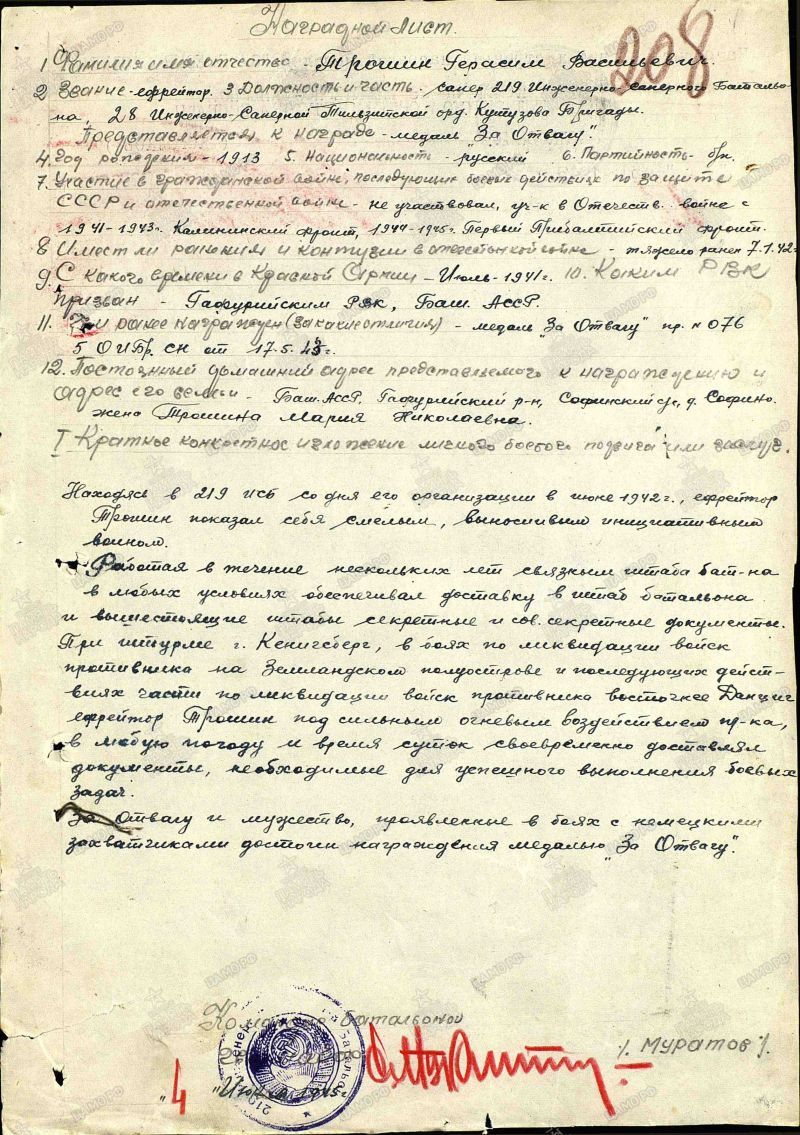 Наградной Лист.
208
1 Фамилия имя отчество - Трошин Герасим Васильевич.
2 Звание - ефрейтор. 3 Должность и часть - сапер 219 Инженерно-саперного Батальо-
на, 28 Инженерно-Саперной Тильзитской орд. Кутузова Бригады.
Представляется к награде - медаль "За Отвагу".
4. Год рождения - 1913 5. Национальность - русский 6. Партийность - б/п.
7. Участие в гражданской войне, последующих боевых действиях по защите
СССР и отечественной войне - не участвовал, уч-к в Отечеств. войне с
1941-1943г. Калининский фронт, 1944-1945г. Первый Прибалтийский фронт.
8 Имеет ли ранения и контузии в отечественной войне - тяжело ранен 7.1.42г
9. С какого времени в Красной Армии - Июль-1941г. 10. Каким РВК
призван - Гафурийским РВК, Баш. АССР.
11. Чем ранее награжден (за какие отличия) - медаль "За Отвагу" пр. № 076
5 ОИБр. СН от 17.5.43г.
12. Постоянный домашний адрес представляемого к награждению и
адрес его семьи - Баш. АССР, Гафурийский р-н, Софинский с/с, д. Софино.
жена Трошина Мария Николаевна.
I Краткое конкретное изложение личного боевого подвига или заслуг.
Находясь в 219 исб со дня его организации в июне 1942г., ефрейтор
Трошин показал себя смелым, выносливым инициативным
воином.
Работая в течение нескольких лет связным штаба бат-на
в любых условиях обеспечивал доставку в штаб батальона
и вышестоящие штабы секретные и сов. секретные документы.
При штурме г. Кенигсберг, в боях по ликвидации войск
противника на Земландском полуострове и последующих дейст-
виях части по ликвидации войск противника восточнее Данциг
ефрейтор Трошин под сильным огневым воздействием пр-ка,
в любую погоду и время суток своевременно доставлял
документы, необходимые для успешного выполнения боевых
задач.
За Отвагу и мужество, проявленные в боях с немецкими
захватчиками достоин награждения медалью "За Отвагу".
Командир батальона
/. Муратов /.
"4 " Июня 1945г